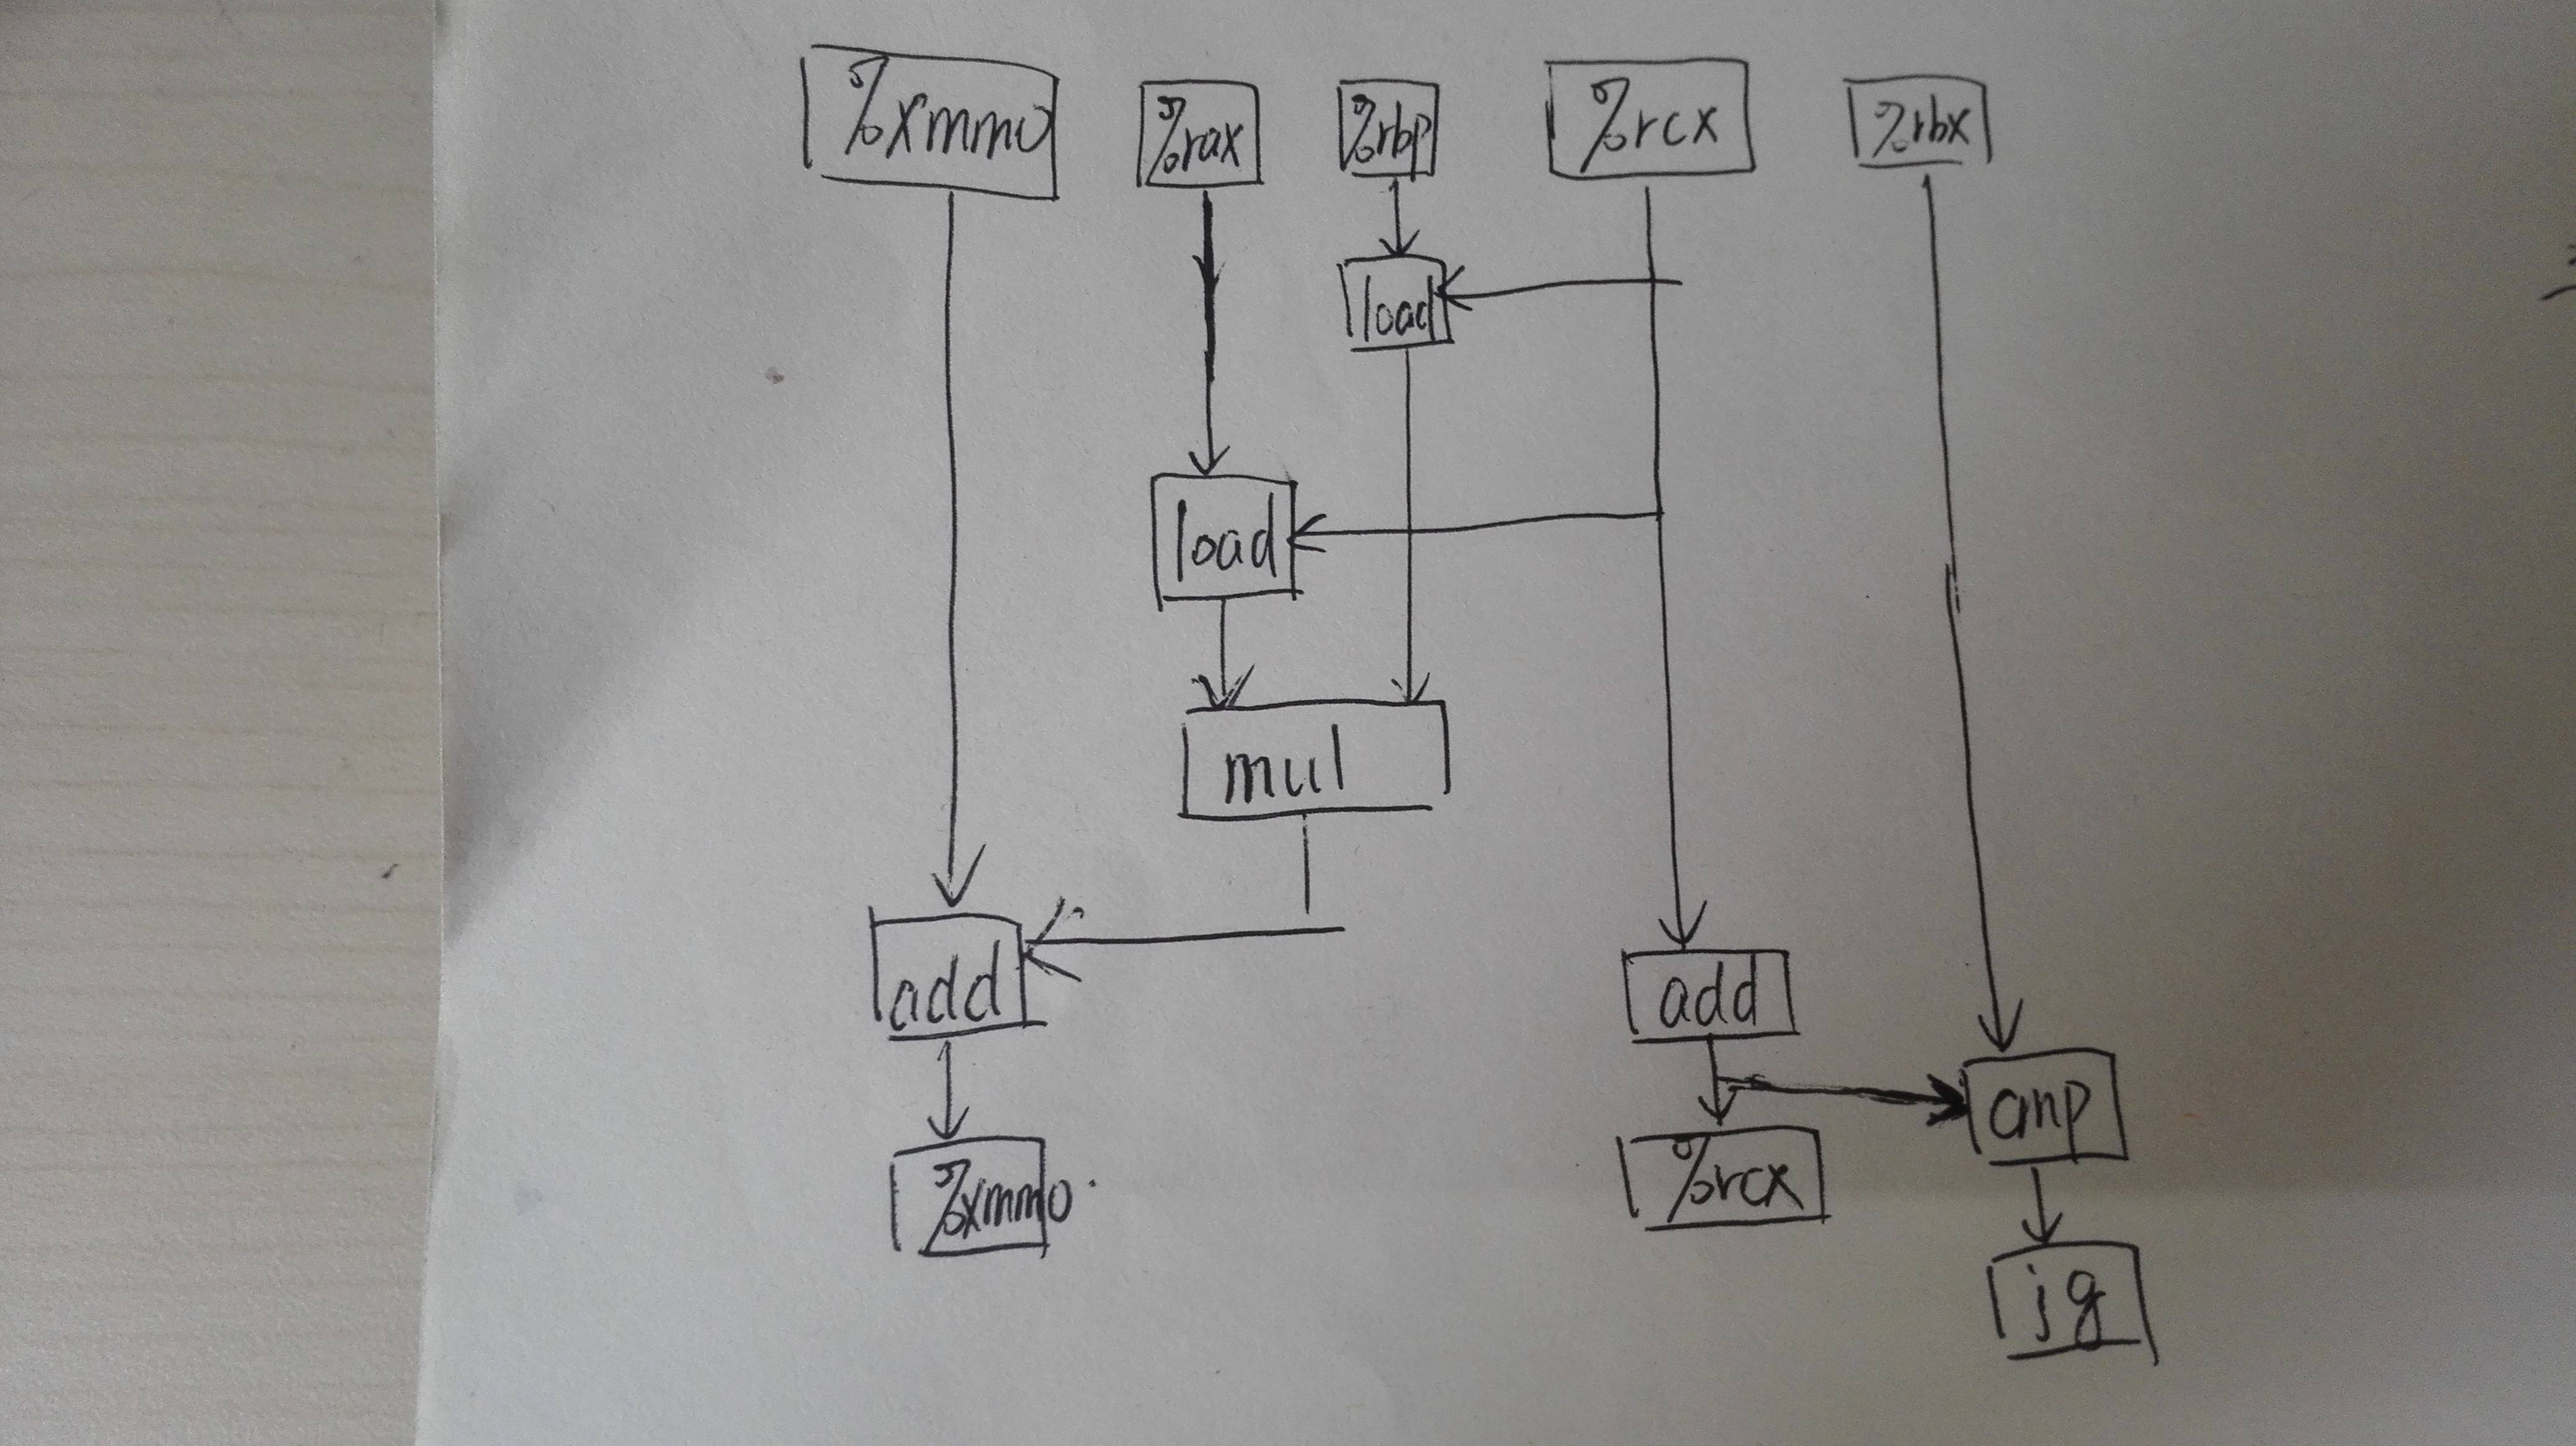 %xmm0 %rax %rbp %rcx %rbx
load
load
mul
add add
cmp
%xmm0 %rcx
jg